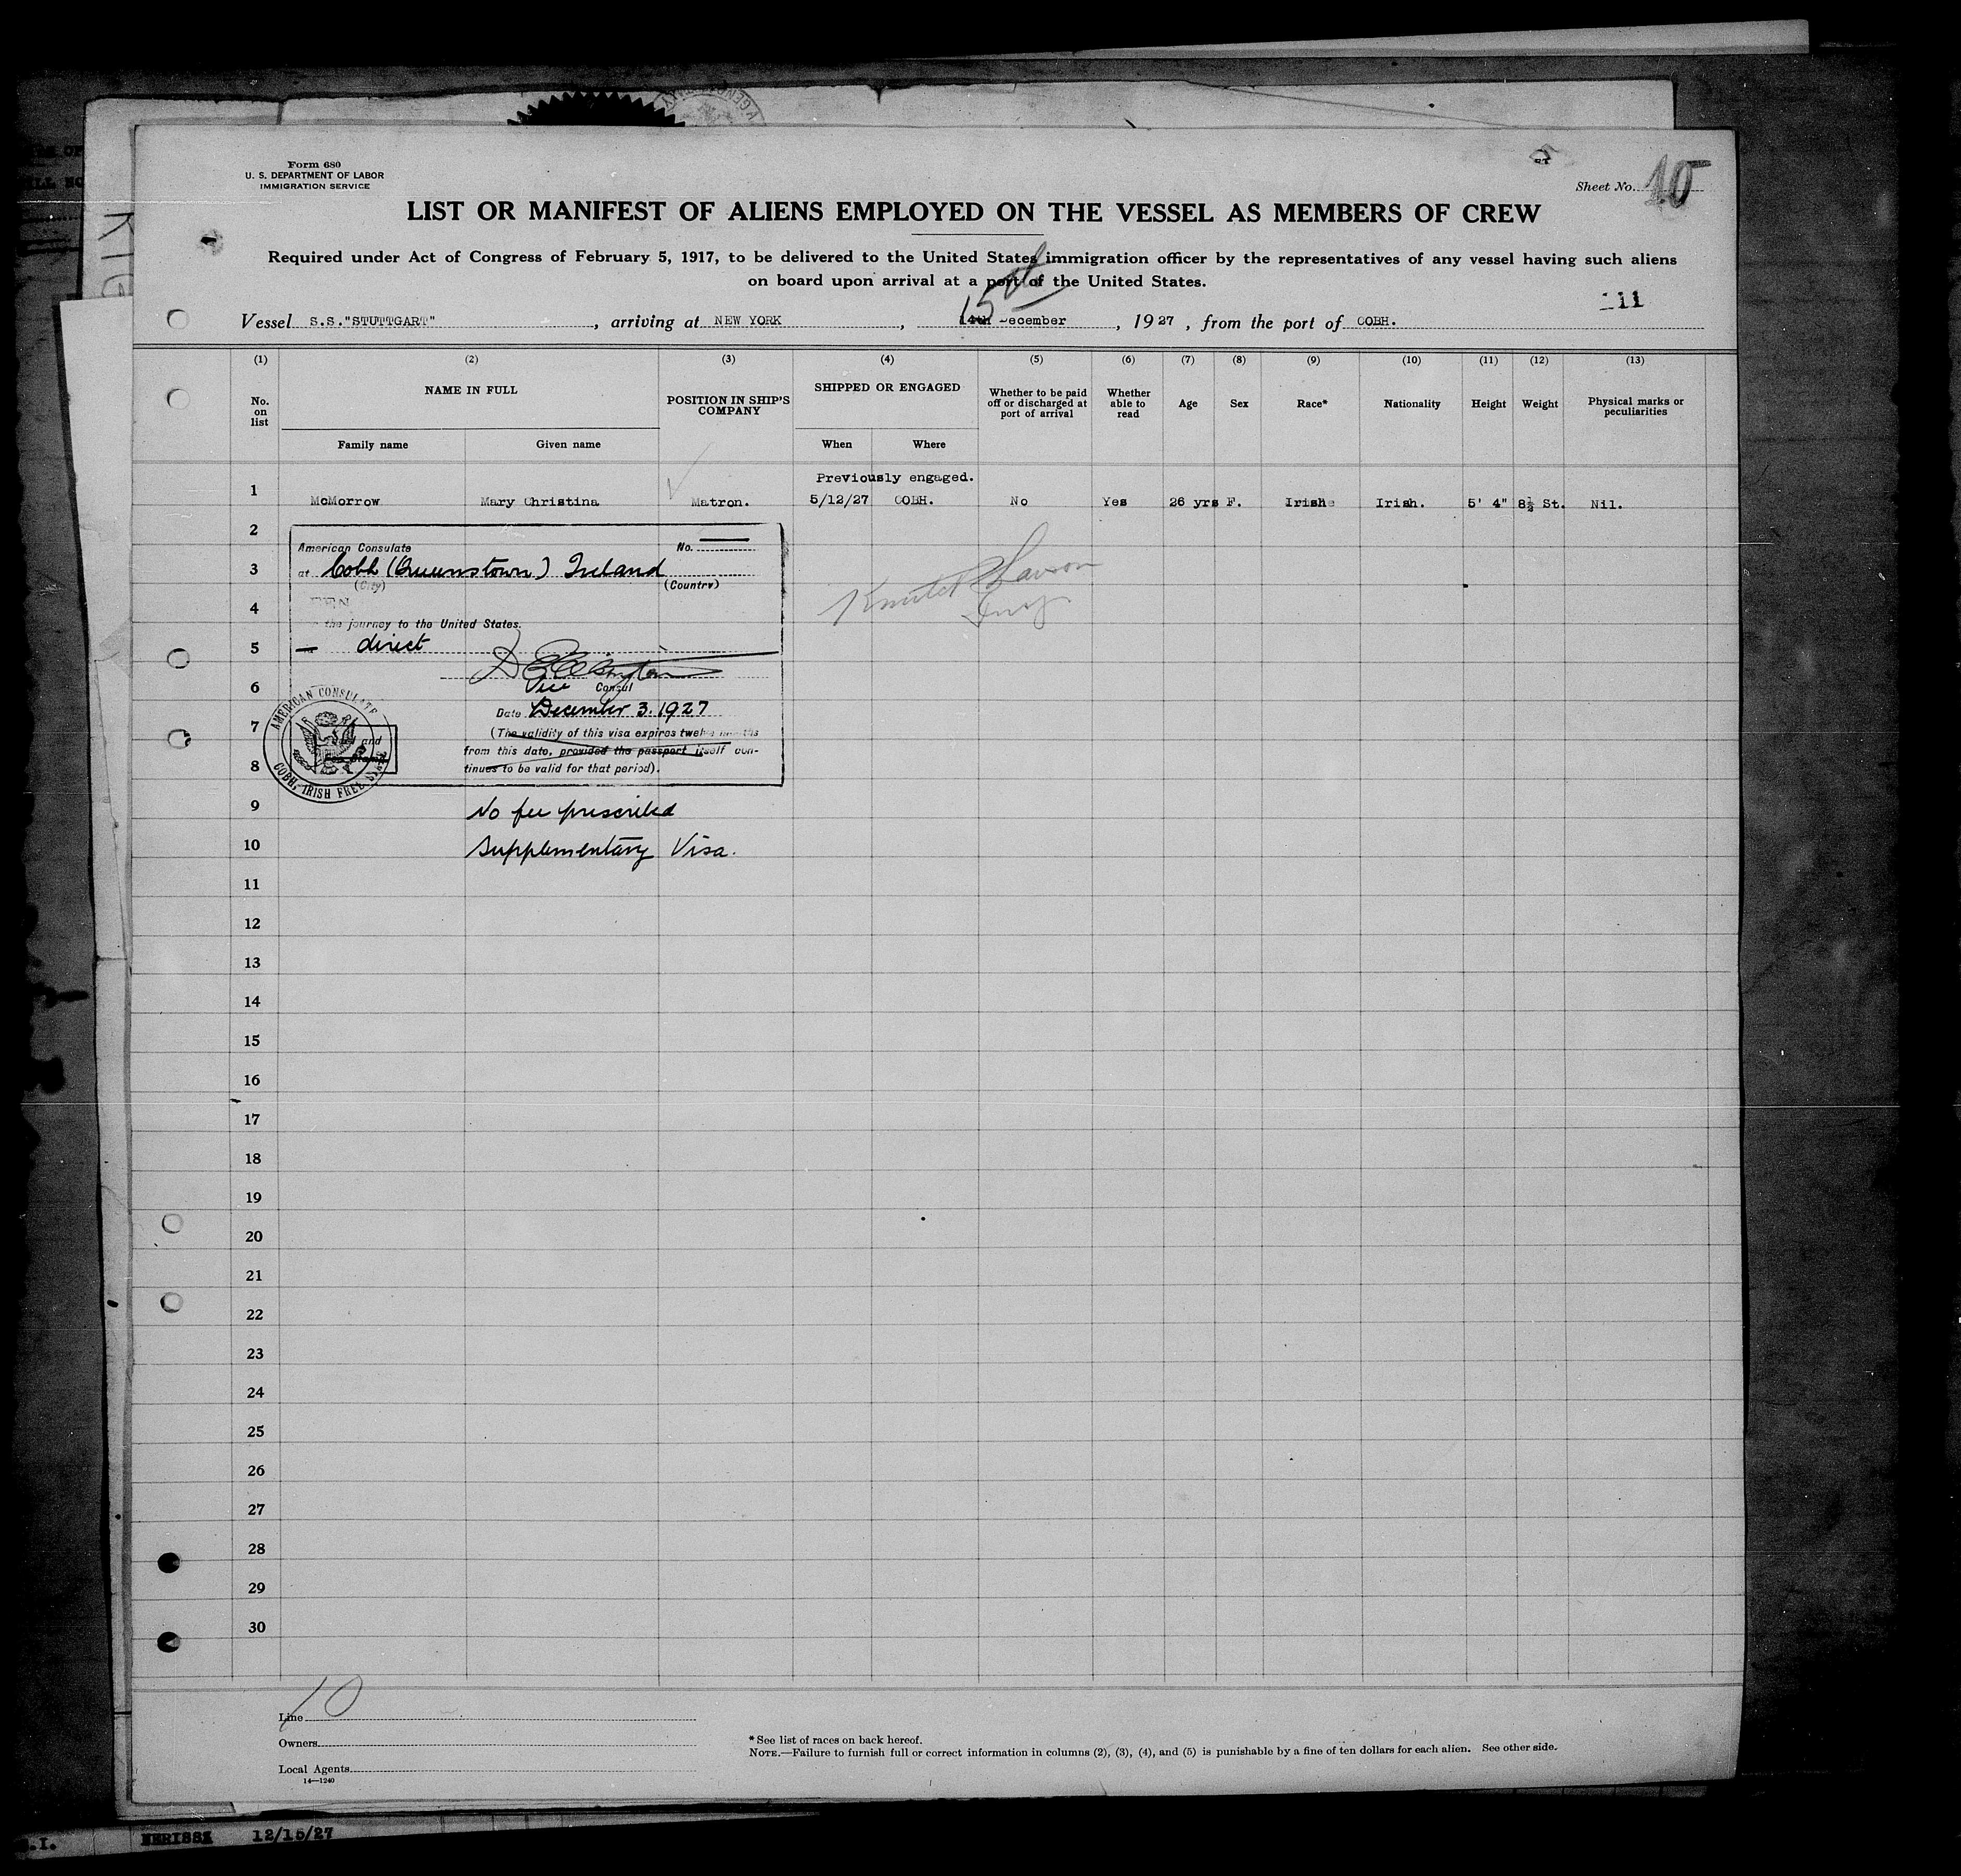 Form 680
U. S. DEPARTMENT OF LABOR
IMMIGRATION SERVICE
Sheet No. 10
LIST OR MANIFEST OF ALIENS EMPLOYED ON THE VESSEL AS MEMBERS OF CREW
Required under Act of Congress of February 5, 1917, to be delivered to the United States immigration officer by the representatives of any vessel having such aliens
on board upon arrival at a port of the United States.
15th
111
Vessel S.S."STUTTGART", arriving at NEW YORK, 14th December, 1927, from the port of COBH.
(1) (2) (3) (4) (5) (6) (7) (8) (9) (10) (11) (12) (13)
No. on list NAME IN FULL POSITION IN SHIP'S COMPANY SHIPPED OR ENGAGED Whether to be paid off or discharged at port of arrival Whether able to read Age Sex Race* Nationality Height Weight Physical marks or peculiarities
Family name Given name When Where
Previously engaged.
1 McMorrow Mary Christina Matron. 5/12/27 COBH. No Yes 26 yrs F. Irish Irish. 5' 4" 8½ St. Nil.
2
American Consulate No.
3
at Cobh (Queenstown) Ireland
(City) (Country)
4
the journey to the United States.
5
direct
6
Vice Consul
Date December 3. 1927
7
(The validity of this visa expires twelve months
from this date, provided the passport itself con-
8
tinues to be valid for that period).
AMERICAN CONSULATE
COBH, IRISH FREE STATE
9
No fee prescribed
10
Supplementary Visa.
11
12
13
14
15
16
17
18
19
20
21
22
23
24
25
26
27
28
29
30
10
Line
Owners
Local Agents
14—1240
* See list of races on back hereof.
NOTE.—Failure to furnish full or correct information in columns (2), (3), (4), and (5) is punishable by a fine of ten dollars for each alien. See other side.
12/15/27